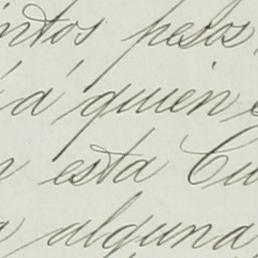 intos pesos
á quien
esta Cu
alguna